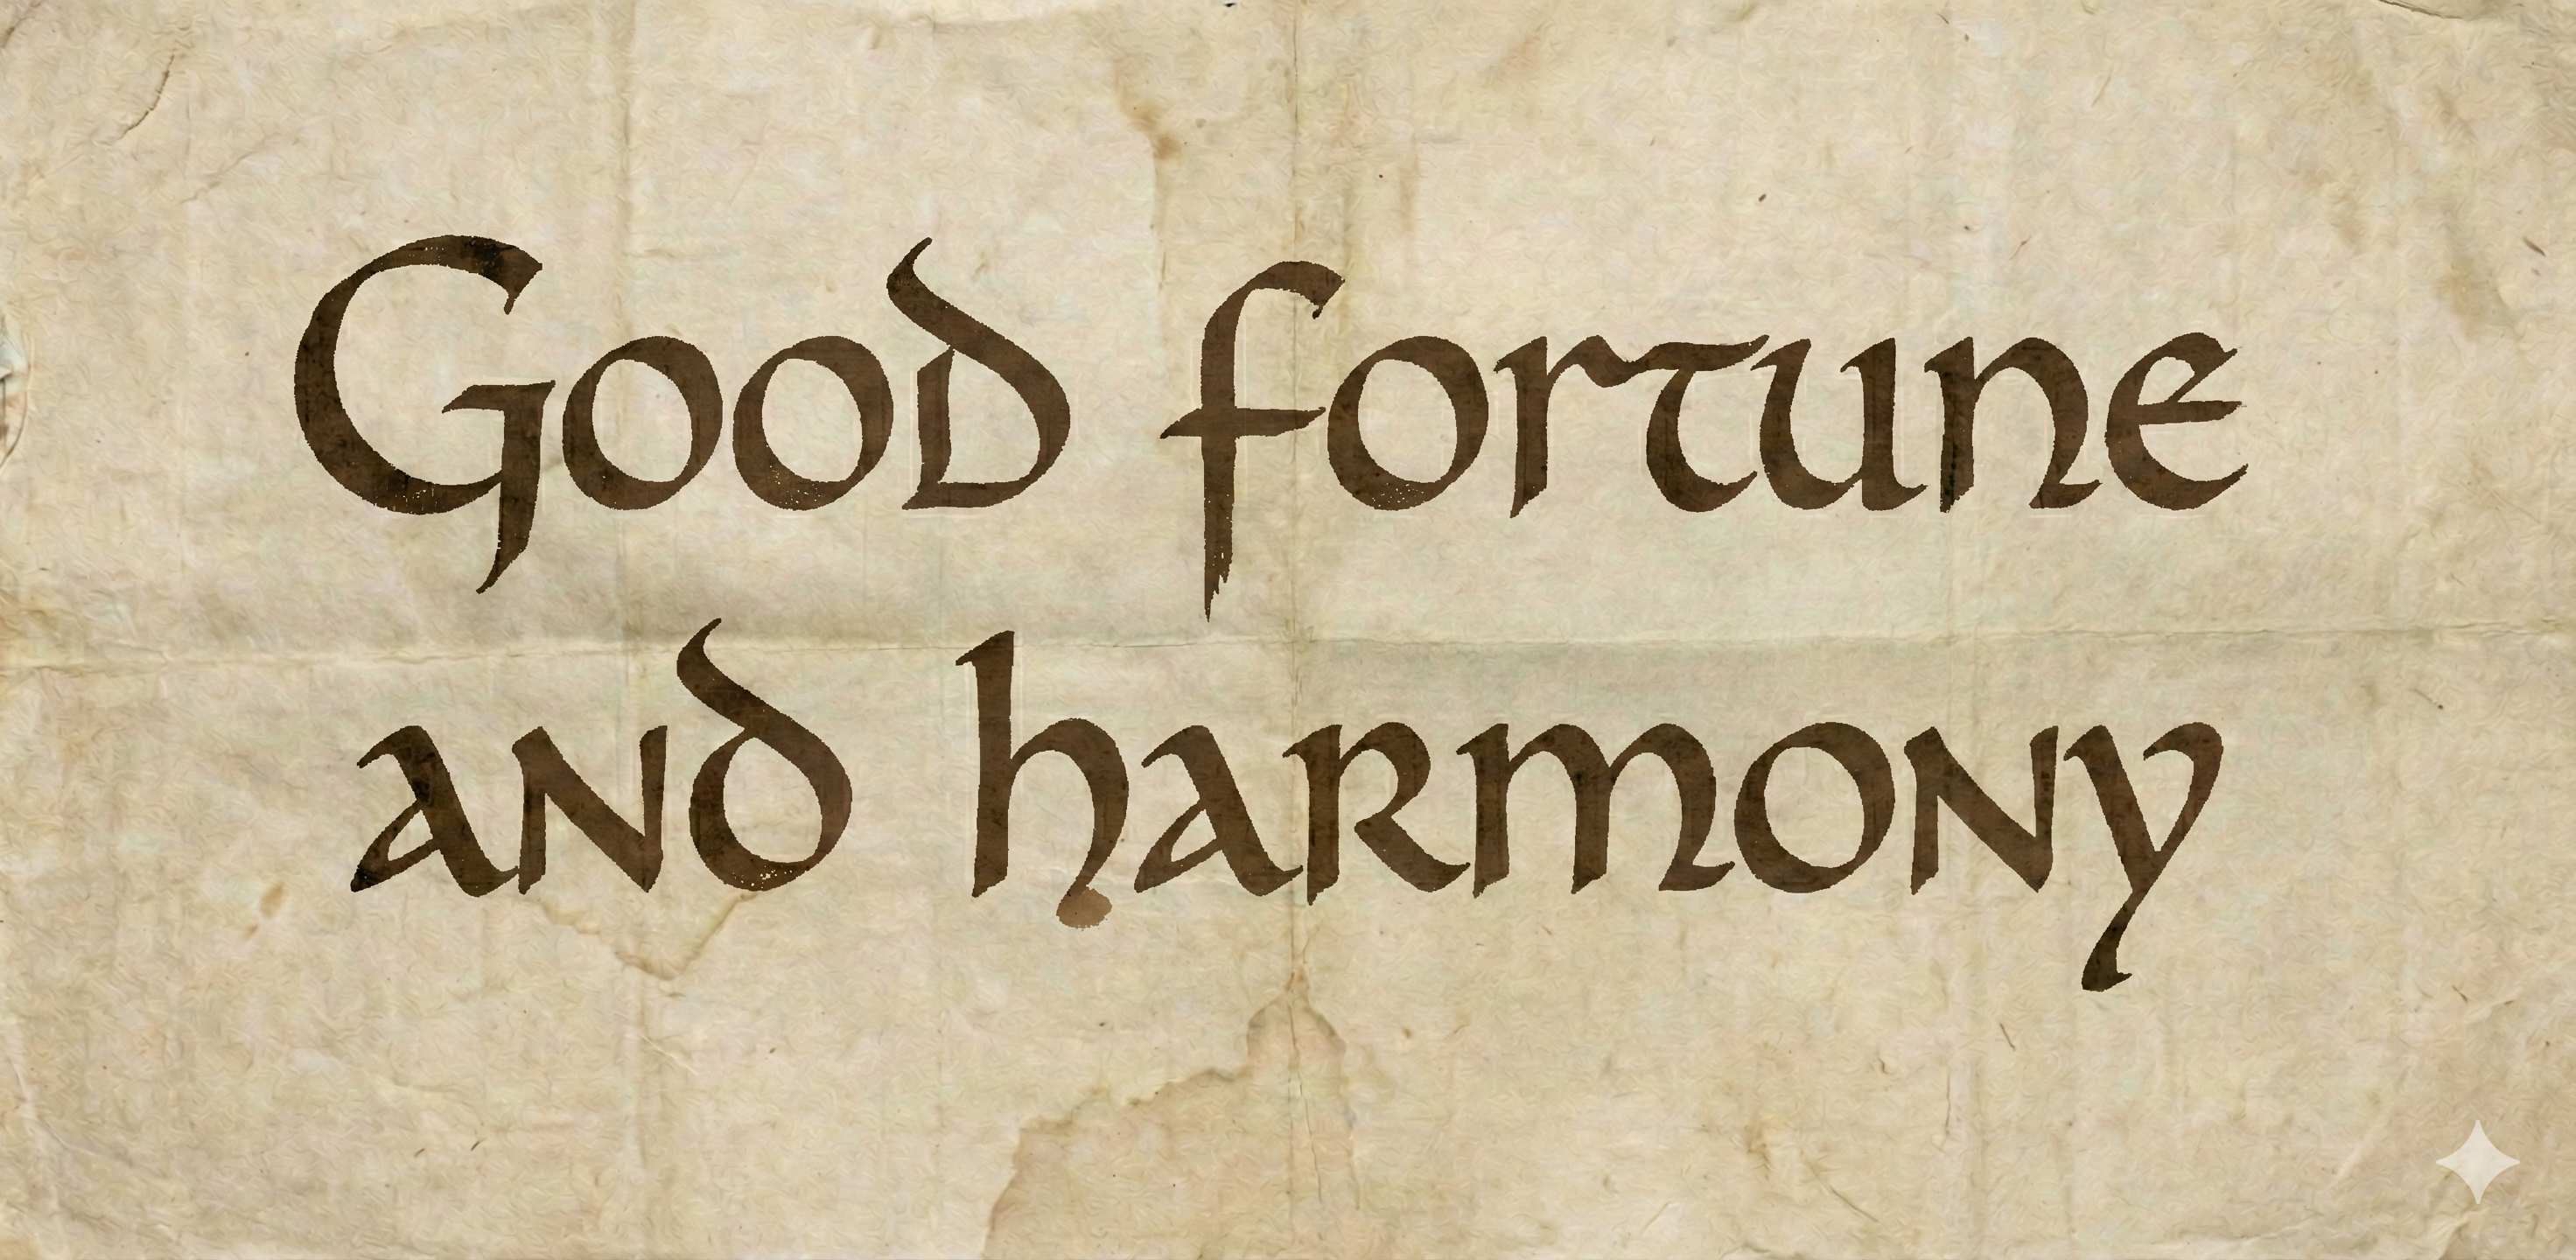 Good fortune
and harmony